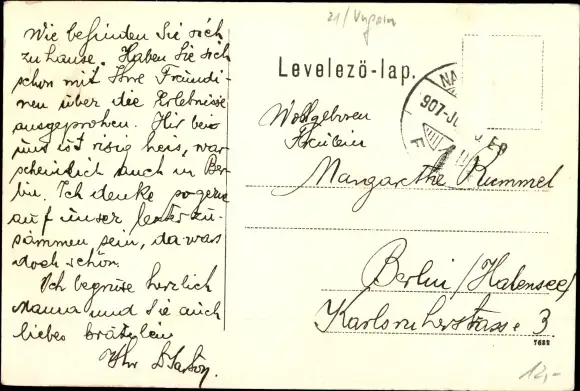 21/Ungarn
Wie befinden Sie sich
zu hause. Haben Sie sich
schon mit Ihre Freundi-
nen über die Erlebnisse
ausgeprohen. Hir bei
uns ist risig heis, war
scheinlich auch in Ber
lin. Ich denke so gerne
auf unser letztes zu-
sammen sein, da was
doch schön.
Ich begrüse herzlich
Mama und Sie auch
liebes
Ihr
Levelező-lap.
907
Wohlgeboren
Fräulein
Margarethe Rummel
Berlin /Halensee/
Karlsruherstrasse 3
7682
12,-